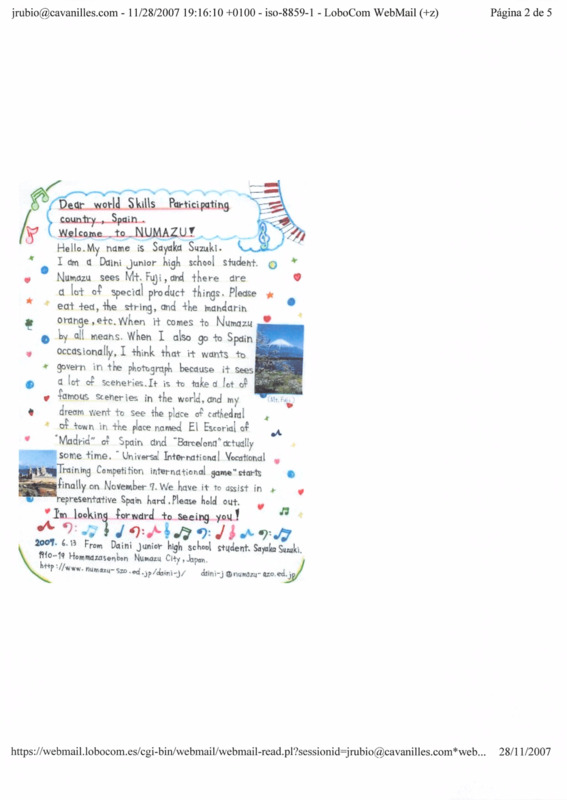 jrubio@cavanilles.com - 11/28/2007 19:16:10 +0100 - iso-8859-1 - LoboCom WebMail (+z)
Página 2 de 5
Dear world Skills Participating
country, Spain.
Welcome to NUMAZU!
Hello. My name is Sayaka Suzuki.
I am a Daini junior high school student.
Numazu sees Mt. Fuji, and there are
a lot of special product things. Please
eat tea, the string, and the mandarin
orange, etc. When it comes to Numazu
by all means. When I also go to Spain
occasionally, I think that it wants to
govern in the photograph because it sees
a lot of sceneries. It is to take a lot of
famous sceneries in the world, and my
(Mt. Fuji)
dream went to see the place of cathedral
of town in the place named El Escorial of
"Madrid" of Spain and "Barcelona" actually
some time. "Universal International Vocational
Training Competition international game" starts
finally on November 7. We have it to assist in
representative Spain hard. Please hold out.
I'm looking forward to seeing you!
2007. 6. 13 From Daini junior high school student. Sayaka Suzuki.
Hommazasenbon Numazu City, Japan.
daini-j
https://webmail.lobocom.es/cgi-bin/webmail/webmail-read.pl?sessionid=jrubio@cavanilles.com*web...
28/11/2007